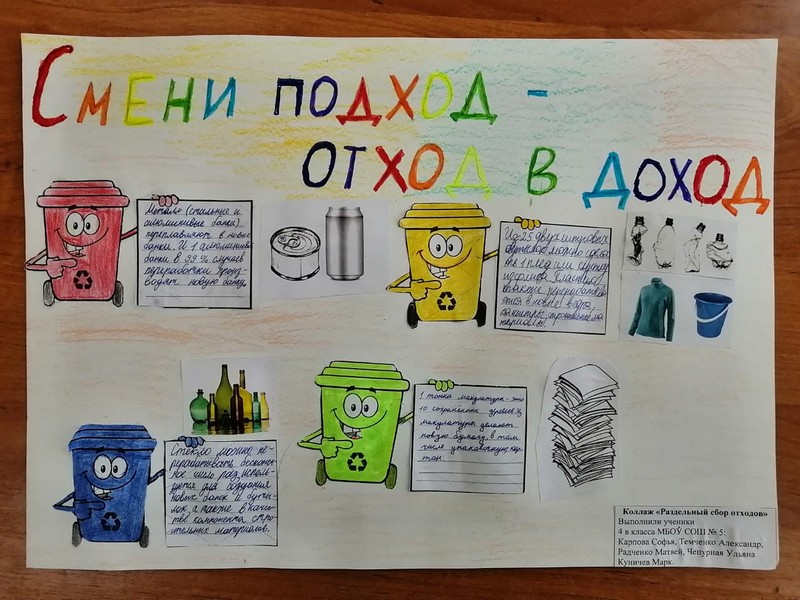 СМЕНИ ПОДХОД -
ОТХОД В ДОХОД
Металл (стальные и
алюминиевые банки)
переплавляют в новые
банки. И 1 алюминиев
банки в 99 % случаев
переработки произ-
водят новую банку.
Из 25 двухлитровых
можно сдела
1 плед или
пластик
также переработав
в новые вёдра,
строительные ма
териалы.
Стекло можно пе-
рерабатывать бесконеч
ное число раз, исполь-
зуется для создания
новых банок и буты-
лок, а также в качес-
тве компонента стро-
ительных материалов.
1 тонна макулатуры - это
10 сохраненных деревьев. Из
макулатуры делают
новую бумагу, в том
числе упаковочную, кар
тон.
Коллаж «Раздельный сбор отходов»
Выполнили ученики
4 в класса МБОЎ СОШ № 5:
Карпова Софья, Темченко Александр,
Радченко Матвей, Чепурная Ульяна
Куничев Марк.